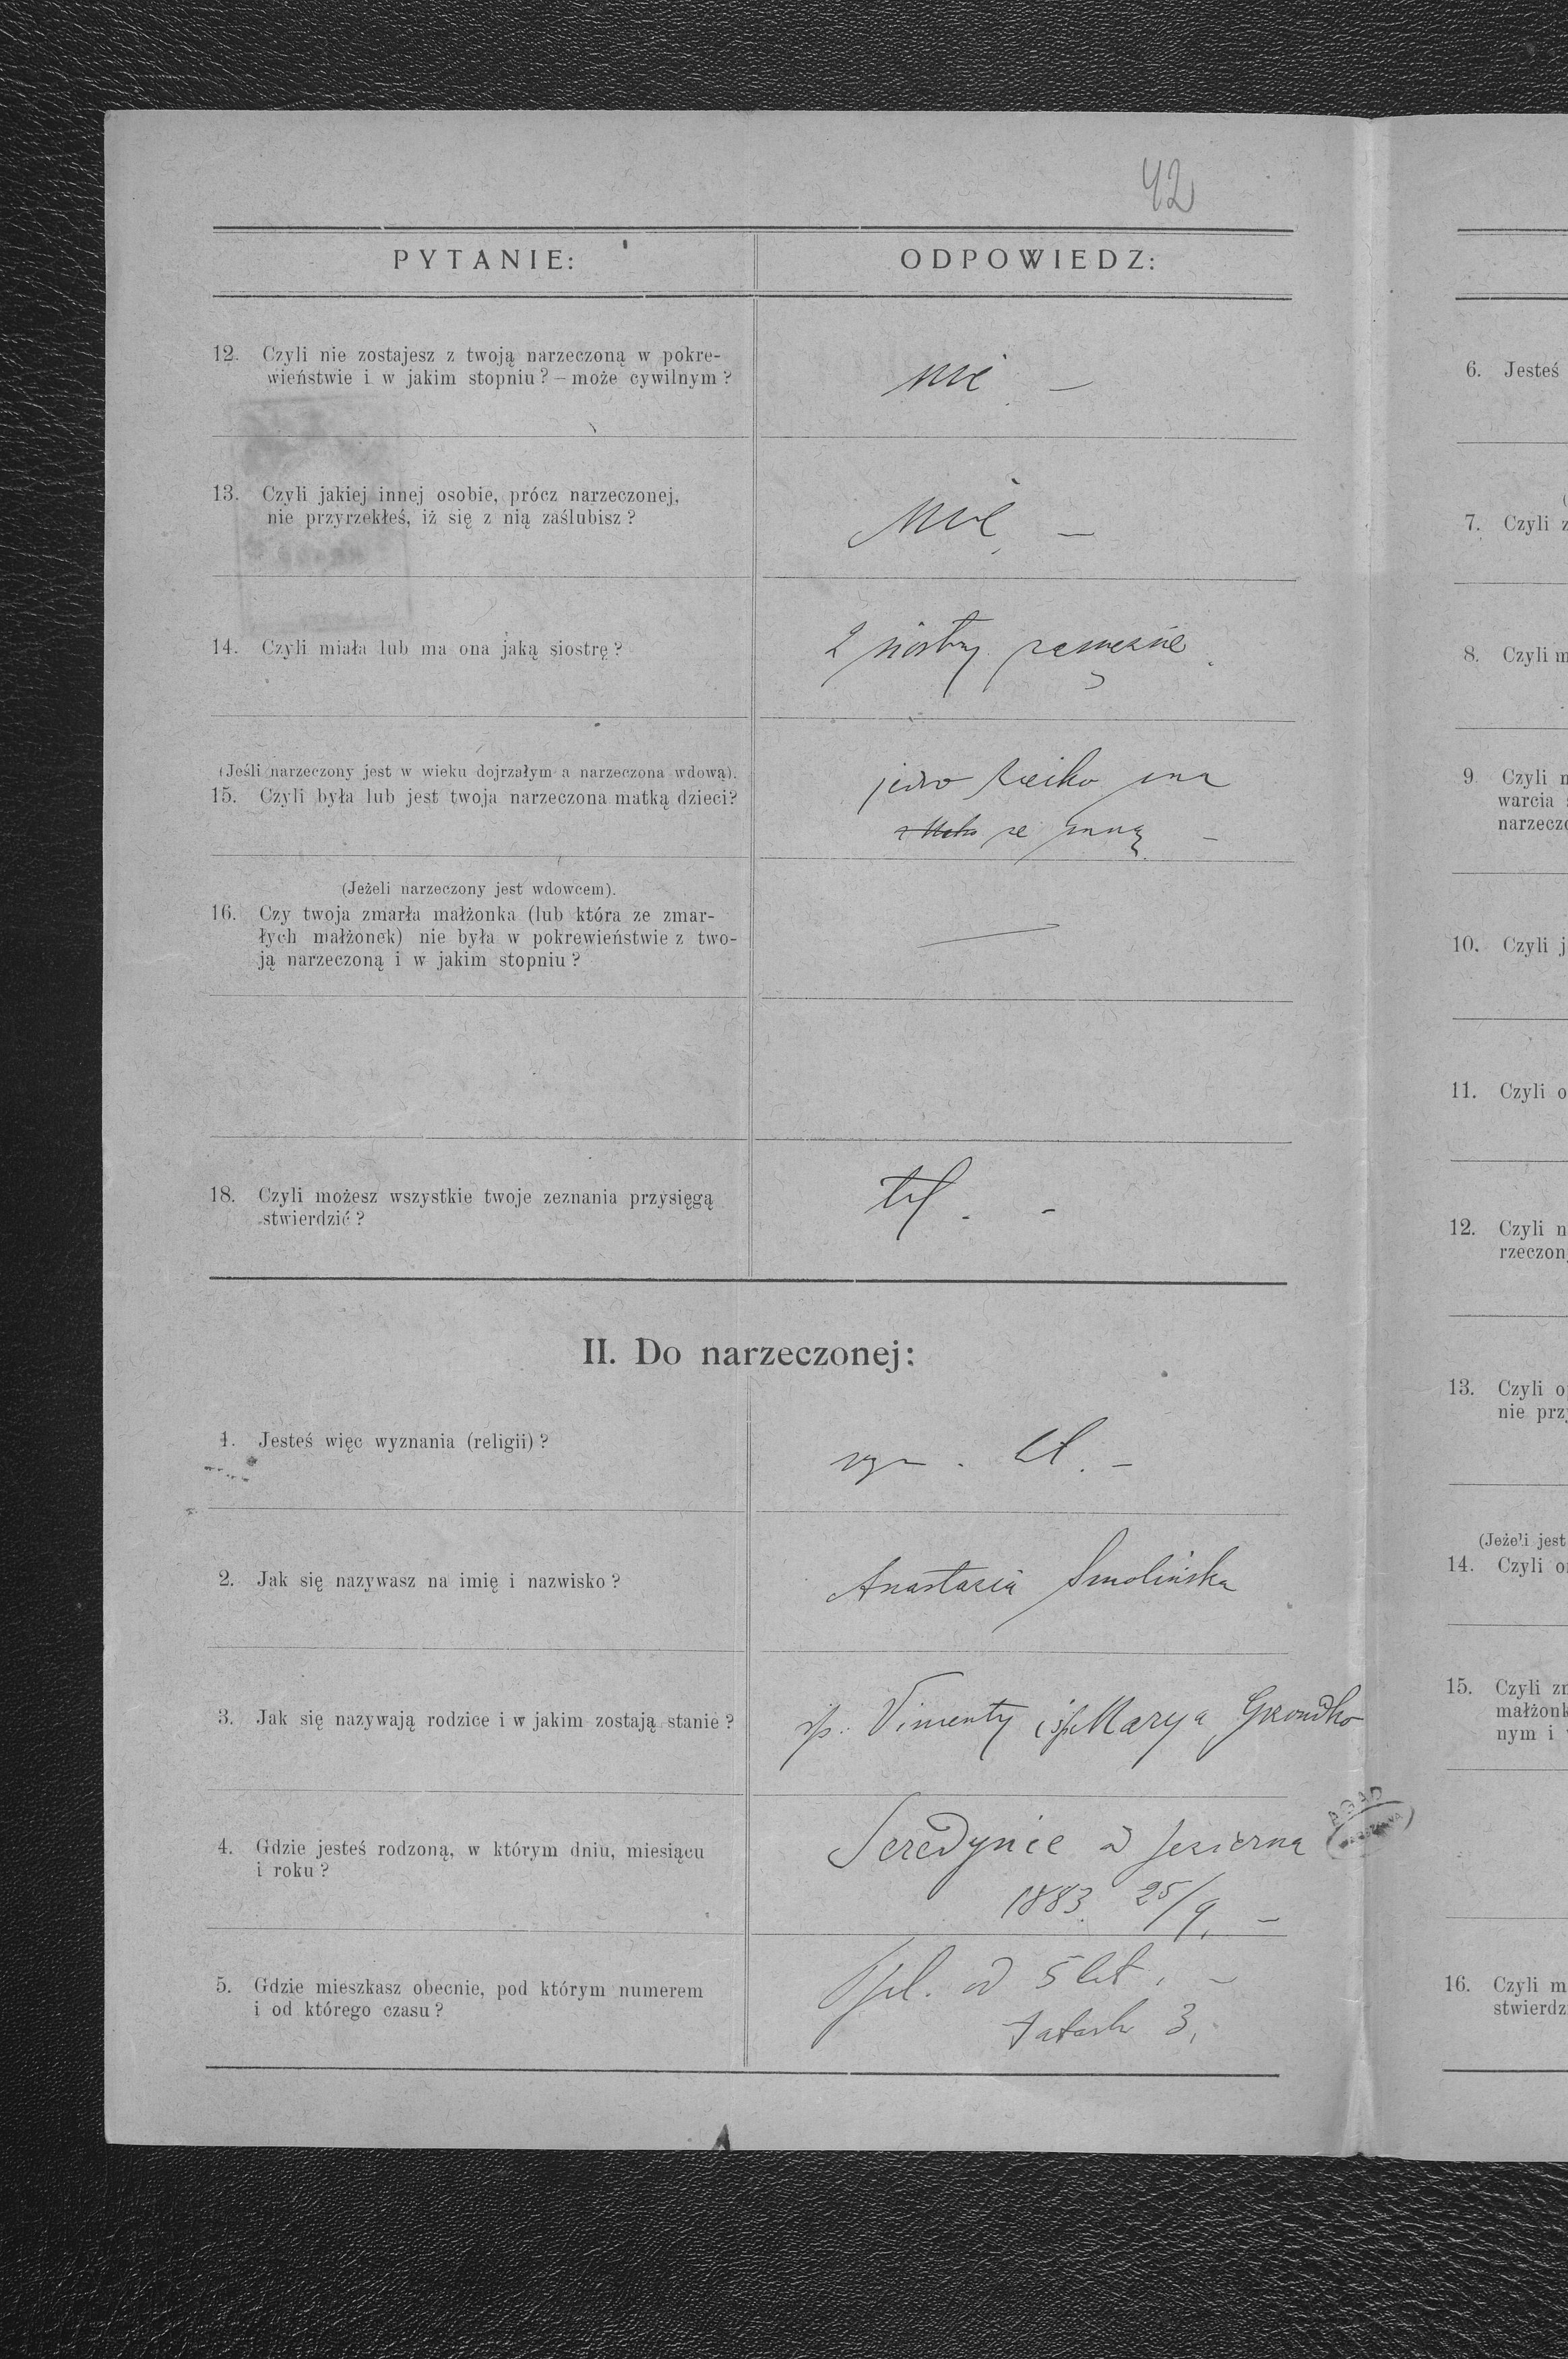 42
PYTANIE:
ODPOWIEDZ:
12. Czyli nie zostajesz z twoją narzeczoną w pokre-
wieństwie i w jakim stopniu? – może cywilnym?
nie —
13. Czyli jakiej innej osobie, prócz narzeczonej,
nie przyrzekłeś, iż się z nią zaślubisz?
nie —
14. Czyli miała lub ma ona jaką siostrę?
2 siostry zamężne
(Jeśli narzeczony jest w wieku dojrzałym a narzeczona wdową).
15. Czyli była lub jest twoja narzeczona matką dzieci?
jedno ma
ze mną —
(Jeżeli narzeczony jest wdowcem).
16. Czy twoja zmarła małżonka (lub która ze zmar-
łych małżonek) nie była w pokrewieństwie z two-
ją narzeczoną i w jakim stopniu?
—
18. Czyli możesz wszystkie twoje zeznania przysięgą
stwierdzić?
II. Do narzeczonej:
1. Jesteś więc wyznania (religii)?
2. Jak się nazywasz na imię i nazwisko?
Anastasia Smolińska
3. Jak się nazywają rodzice i w jakim zostają stanie?
śp. Vincenty i śp. Marya
4. Gdzie jesteś rodzoną, w którym dniu, miesiącu
i roku?
Seredynce Jezierna
1883 25/9. —
AGAD
5. Gdzie mieszkasz obecnie, pod którym numerem
i od którego czasu?
od 5 lat. —
3.
6. Jesteś
7. Czyli z
8. Czyli m
9. Czyli n
warcia
narzecz
10. Czyli j
11. Czyli o
12. Czyli n
rzeczon
13. Czyli o
nie prz
(Jeżeli jest
14. Czyli o
15. Czyli zn
małżonk
nym i
16. Czyli m
stwierdz